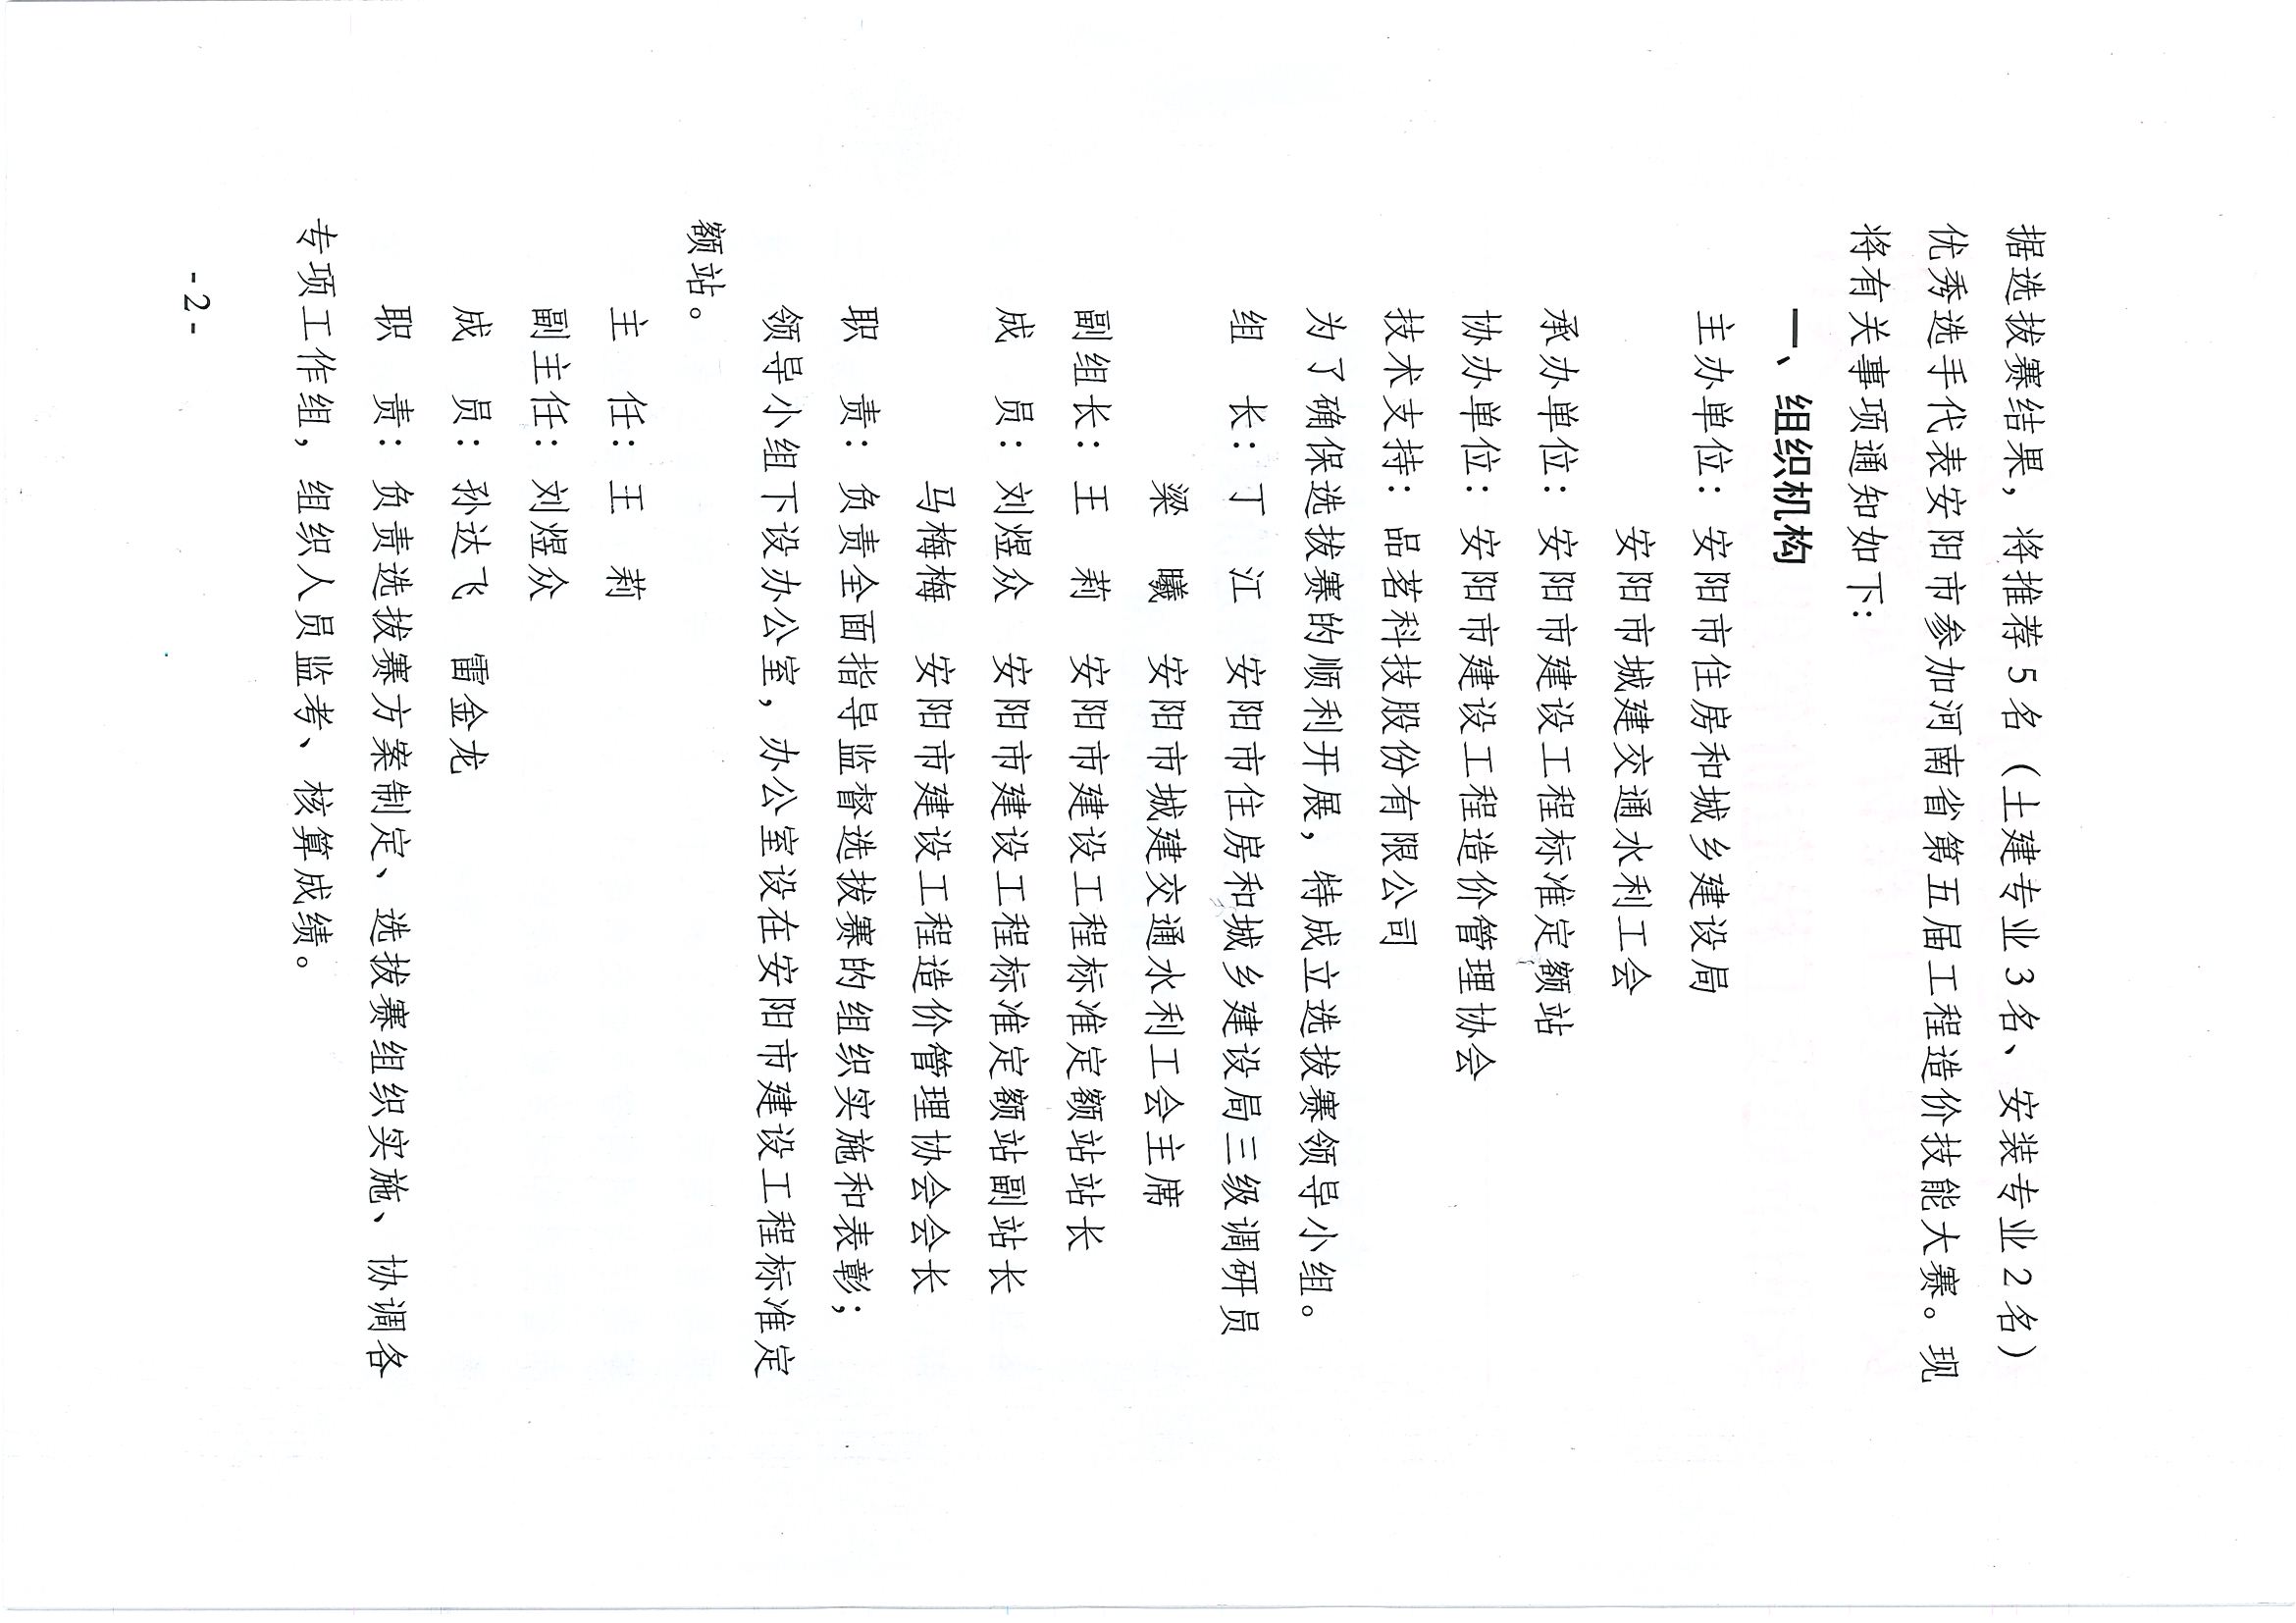 据选拔赛结果，将推荐5名（土建专业3名、安装专业2名）
优秀选手代表安阳市参加河南省第五届工程造价技能大赛。现
将有关事项通知如下：
一、组织机构
主办单位：安阳市住房和城乡建设局
安阳市城建交通水利工会
承办单位：安阳市建设工程标准定额站
协办单位：安阳市建设工程造价管理协会
技术支持：品茗科技股份有限公司
为了确保选拔赛的顺利开展，特成立选拔赛领导小组。
组 长：丁 江 安阳市住房和城乡建设局三级调研员
梁 曦 安阳市城建交通水利工会主席
副组长：王 莉 安阳市建设工程标准定额站站长
成 员：刘煜众 安阳市建设工程标准定额站副站长
马梅梅 安阳市建设工程造价管理协会会长
职 责：负责全面指导监督选拔赛的组织实施和表彰；
领导小组下设办公室，办公室设在安阳市建设工程标准定
额站。
主 任：王 莉
副主任：刘煜众
成 员：孙达飞 雷金龙
职 责：负责选拔赛方案制定、选拔赛组织实施、协调各
专项工作组，组织人员监考、核算成绩。
- 2 -